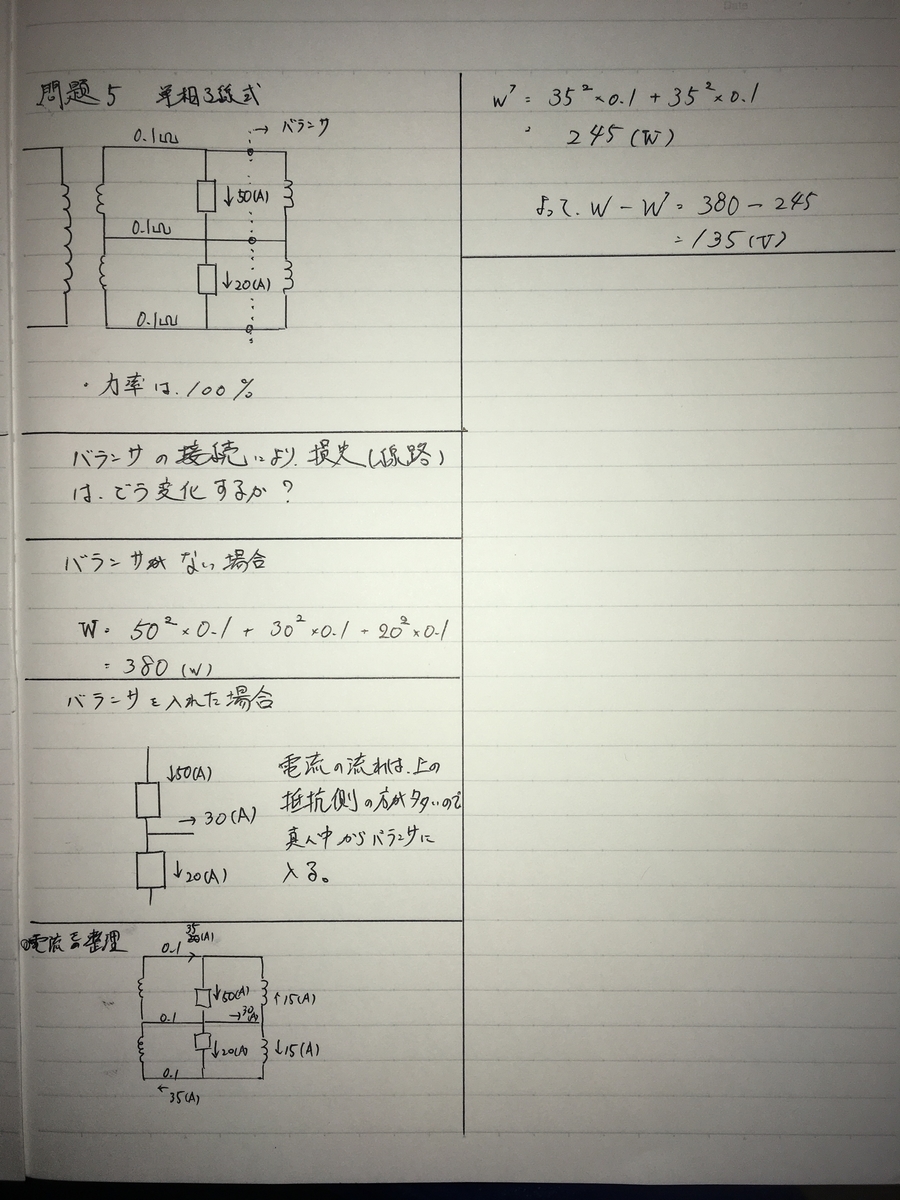 問題5 単相3線式
0.1Ω
→ バランサ
↓50(A)
0.1Ω
↓20(A)
0.1Ω
・力率は、100%
バランサの接続により、損失(線路)
は、どう変化するか?
バランサがない場合
W = 50² × 0.1 + 30² × 0.1 + 20² × 0.1
= 380 (W)
バランサを入れた場合
↓50(A)
→ 30(A)
↓20(A)
電流の流れは、上の
抵抗側の方が多いので
真ん中からバランサに
入る。
電流を整理
35
0.1
(A)
↓50(A)
↑15(A)
0.1
→30(A)
↓20(A)
↓15(A)
0.1
←35(A)
W' = 35² × 0.1 + 35² × 0.1
= 245 (W)
よって、W - W' = 380 - 245
= 135 (W)